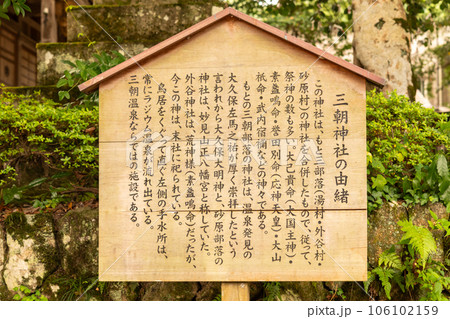 三朝神社の由緒
この神社は、もと三部落(湯村・外谷村・
砂原村)の神社を合併したもので、従って、
祭神の数も多く、大己貴命(大国主神)・
素盞嗚命・誉田別命(応神天皇)・大山
祇命・武内宿禰などの神々である。
もとの三朝部落の神社は、温泉発見の
大久保左馬之祐が厚く崇拝したという
言われから大久保大明神と、砂原部落の
神社は、妙見山正八幡宮と称していた。
外谷神社は、荒神様(素盞嗚命)だったが、
今この神は、末社に祀られている。
鳥居をくぐって直ぐ左側の手水所は、
常にラジウム温泉が流れ出ている。
三朝温泉ならではの施設である。
pixta.jp - 106102159